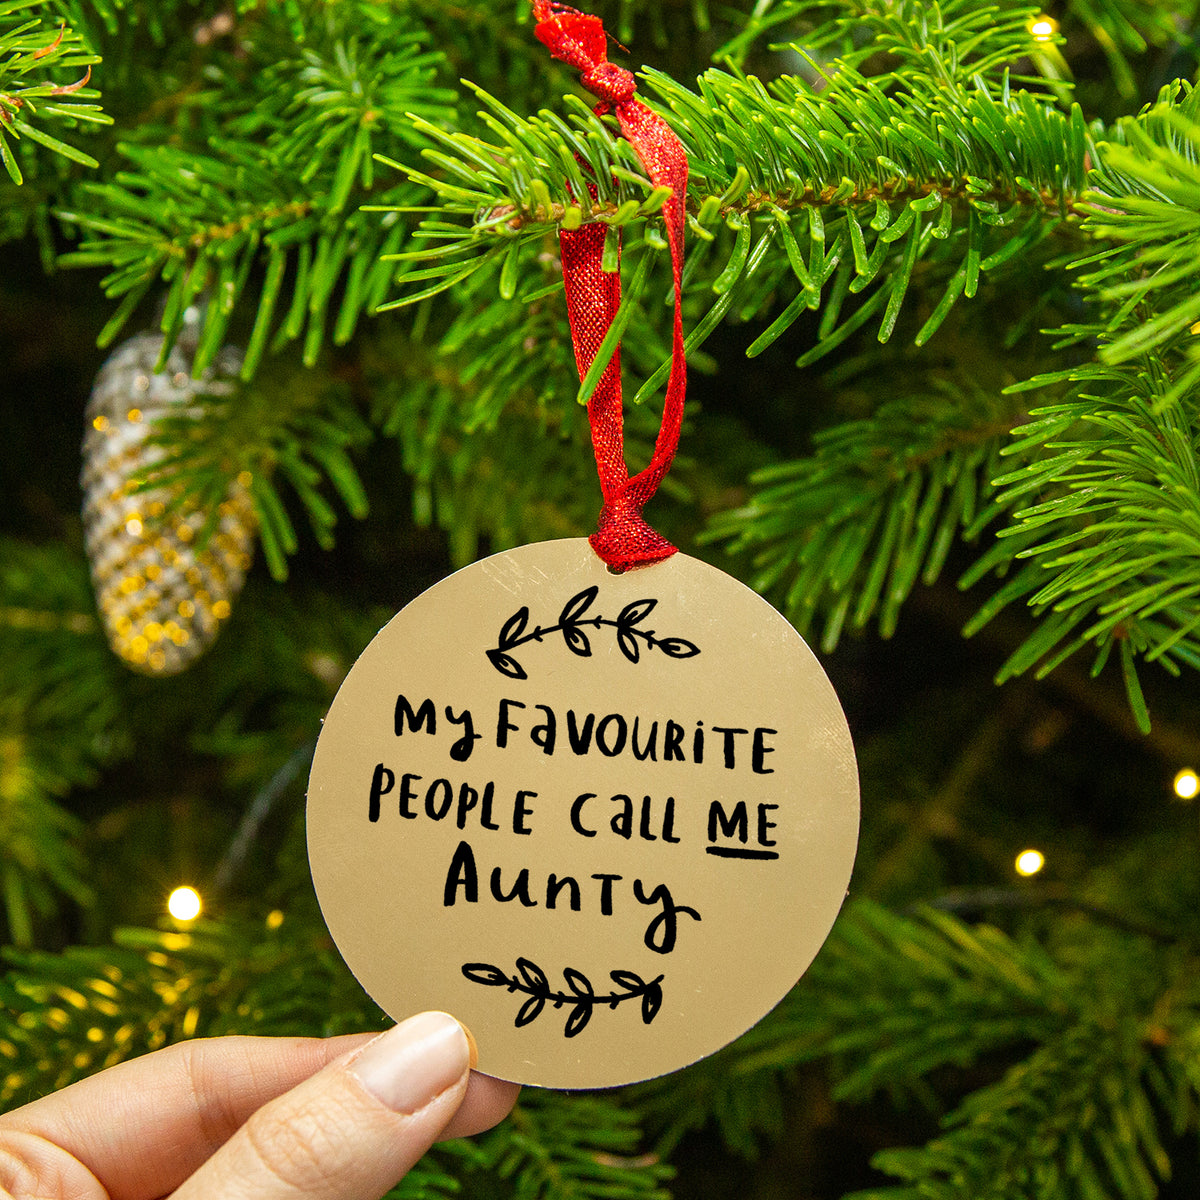 My FaVOURiTE
PEOPLE Call ME
AunTy